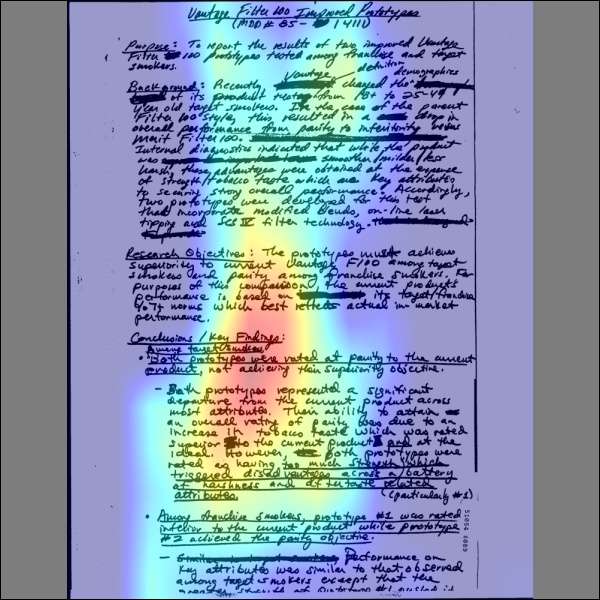 Vantage Filter 100 Improved Prototypes
(MDD # 85- 1411)
Purpose: To report the results of two improved Vantage
Filter 100 prototypes tested among franchise and target
smokers.
Vantage definition demographics
Background: Recently, changed the
of its product tests from 18+ to 25-49
year old target smokers. In the case of the parent
Filter 100 style, this resulted in a drop in
overall performance from parity to inferiority versus
Merit Filter 100.
Internal diagnostics indicated that while the product
was smoother/milder/less
harsh, these advantages were obtained at the expense
of strength/tobacco taste which are key attributes
to securing strong overall performance. Accordingly,
two prototypes were developed for this test
that incorporate modified blends, on-line laser
tipping and SCS IV filter technology.
Research Objectives: The prototypes must achieve
superiority to current Vantage F/100 among target
smokers and parity among franchise smokers. For
purposes of this comparison, the current product's
performance is based on its target/franchise
norms which best reflects actual in-market
performance.
Conclusions/Key Findings:
Among target smokers,
• Both prototypes were rated at parity to the current
product, not achieving their superiority objective.
- Both prototypes represented a significant
departure from the current product across
most attributes. Their ability to attain
an overall rating of parity was due to an
increase in tobacco taste which was rated
superior to the current product and at the
ideal. However both prototypes were
rated as having too much strength which
triggered disadvantages across a battery
of harshness and aftertaste related
attributes. (particularly #1)
• Among franchise smokers, prototype #1 was rated
inferior to the current product while prototype
#2 achieved the parity objective.
- Performance on
key attributes was similar to that observed
among target smokers except that the
greater strength of prototype #1 
51054 6089